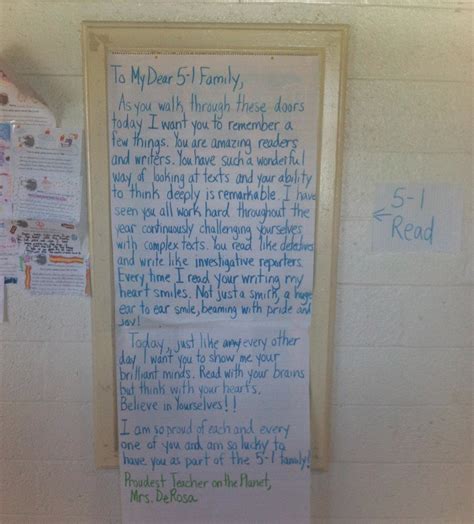 To My Dear 5-1 Family,
As you walk through these doors
today I want you to remember a
few things. You are amazing readers
and writers. You have such a wonderful
way of looking at texts and your ability
to think deeply is remarkable. I have
seen you all work hard throughout the
year continuously challenging yourselves
with complex texts. You read like detectives
and write like investigative reporters.
Every time I read your writing my
heart smiles. Not just a smirk, a huge
ear to ear smile, beaming with pride and
joy!
Today, just like every other
day I want you to show me your
brilliant minds. Read with your brains
but think with your hearts.
Believe in Yourselves!!
I am so proud of each and every
one of you and am so lucky to
have you as part of the 5-1 family!
Proudest Teacher on the Planet,
Mrs. DeRosa
5-1
Read